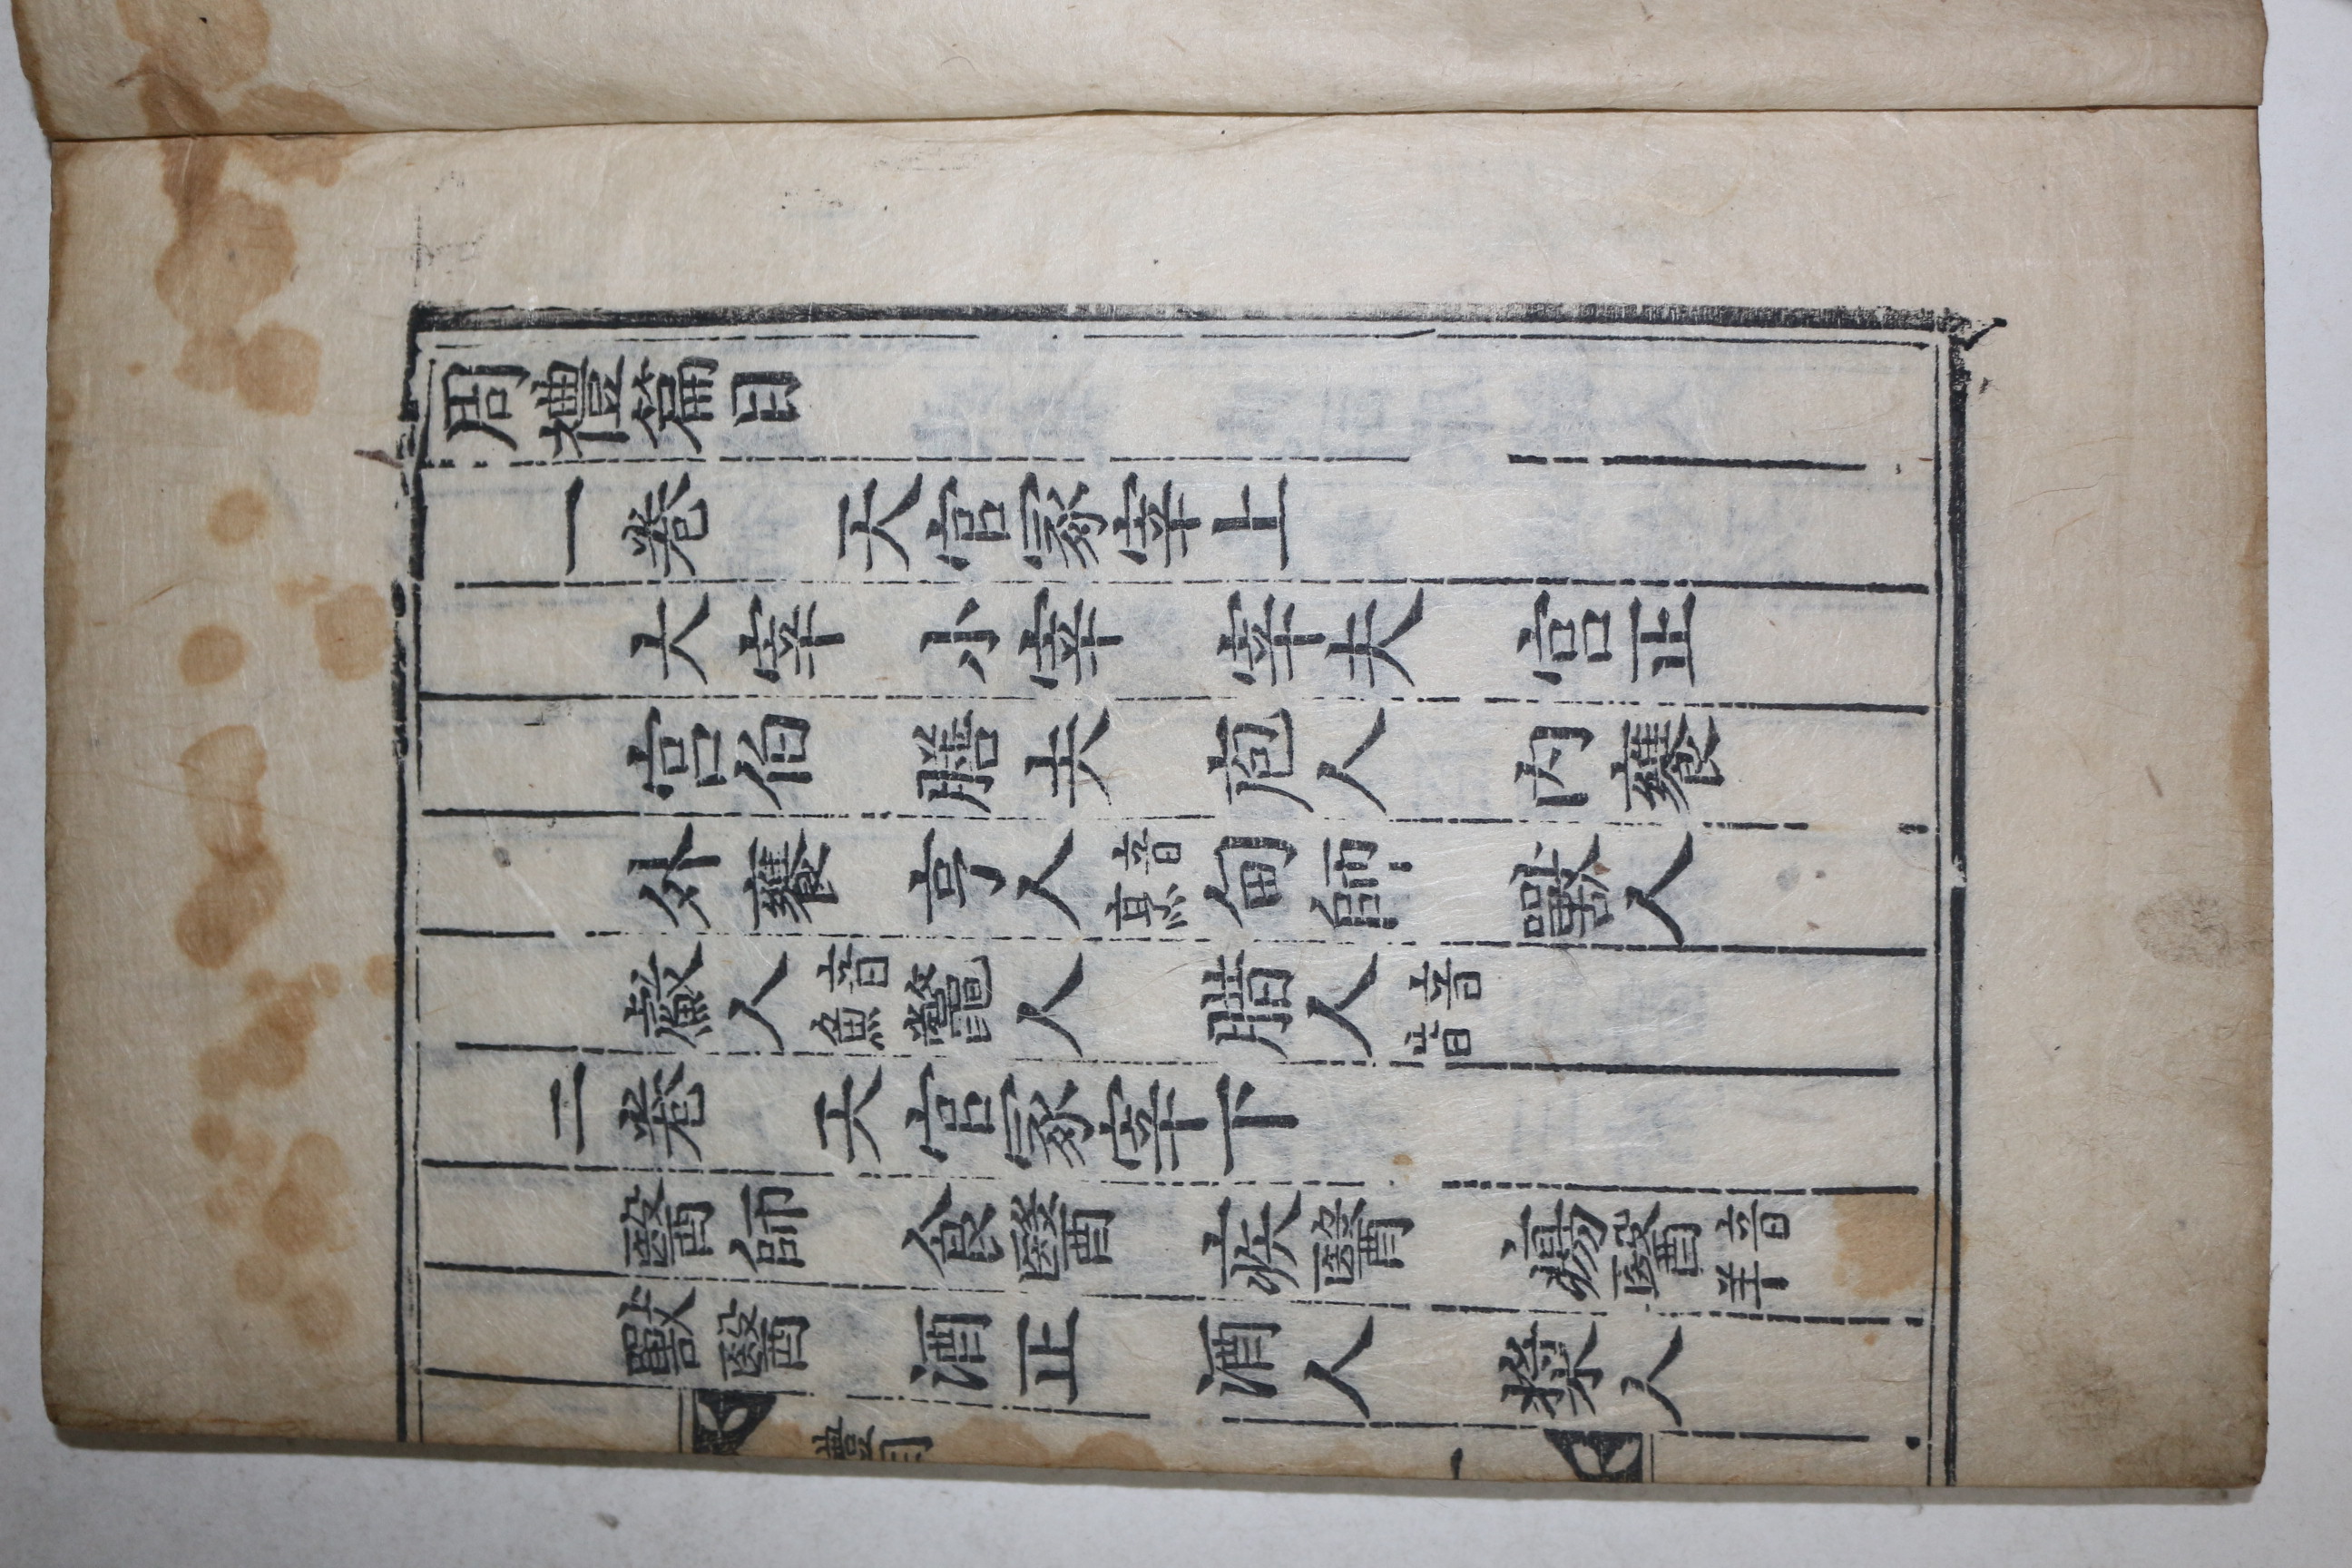 周禮篇目
一卷 天官冢宰上
大宰 小宰 宰夫 宮正
宮伯 膳夫 庖人 內饔
外饔 亨人音烹 甸師 獸人
人音魚 鼈人 腊人音昔
二卷 天官冢宰下
醫師 食醫 疾醫 瘍醫音羊
獸醫 酒正 酒人 漿人